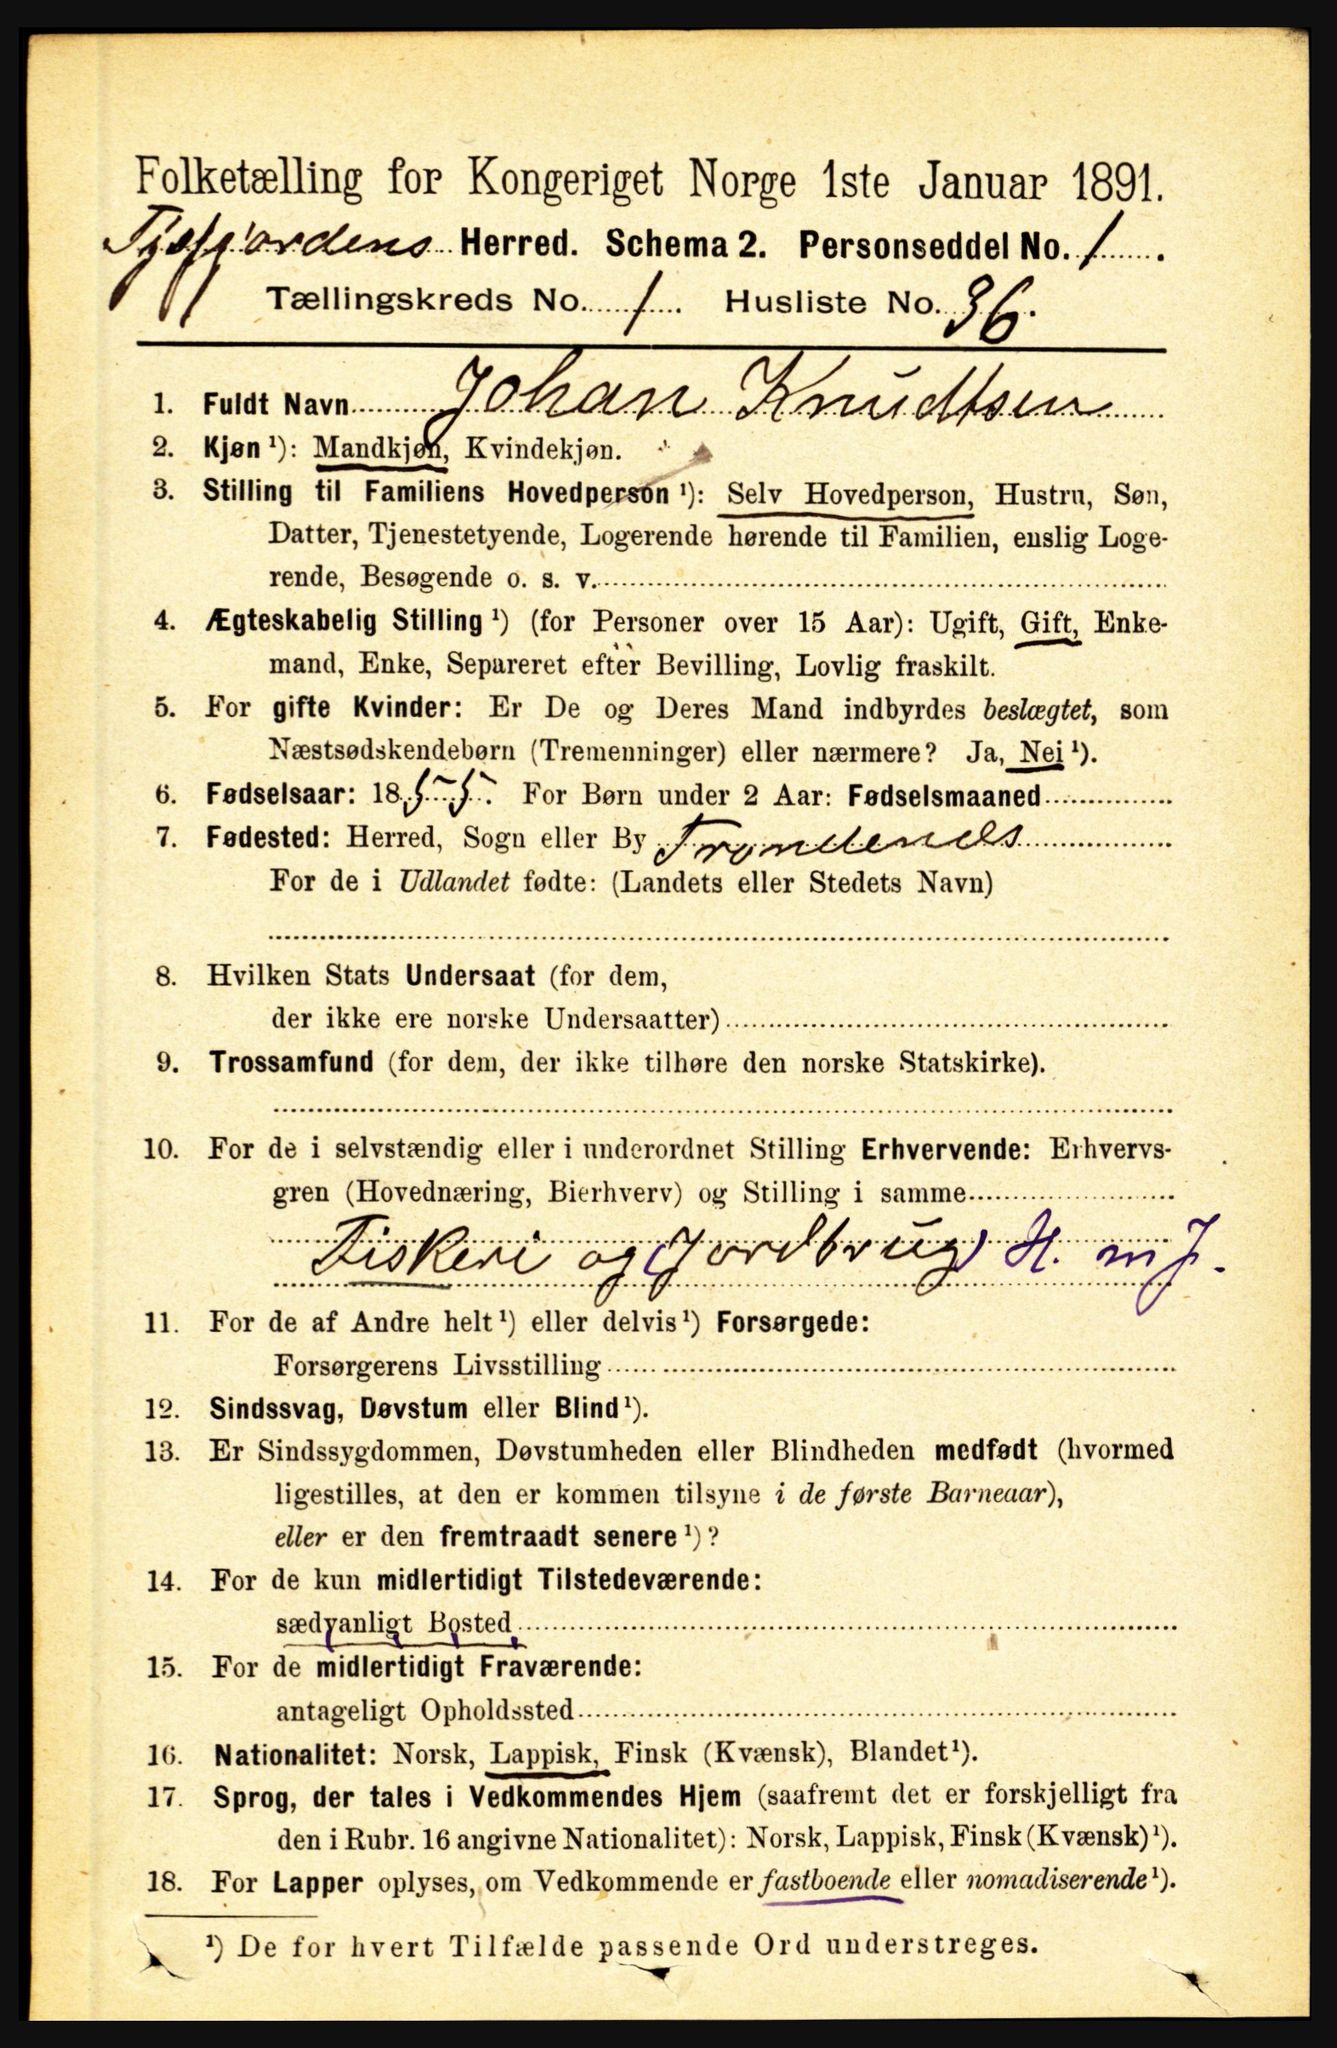 Folketælling for Kongeriget Norge 1ste Januar 1891.
Tysfjordens Herred. Schema 2. Personseddel No. 1.
Tællingskreds No. 1. Husliste No. 36.
1. Fuldt Navn Johan Knudtsen
2. Kjøn ¹): Mandkjøn, Kvindekjøn.
3. Stilling til Familiens Hovedperson ¹): Selv Hovedperson, Hustru, Søn,
Datter, Tjenestetyende, Logerende hørende til Familien, enslig Loge-
rende, Besøgende o. s. v.
4. Ægteskabelig Stilling ¹) (for Personer over 15 Aar): Ugift, Gift, Enke-
mand, Enke, Separeret efter Bevilling, Lovlig fraskilt.
5. For gifte Kvinder: Er De og Deres Mand indbyrdes beslægtet, som
Næstsødskendebørn (Tremenninger) eller nærmere? Ja, Nei ¹).
6. Fødselsaar: 1855. For Børn under 2 Aar: Fødselsmaaned
7. Fødested: Herred, Sogn eller By Trondenæs
For de i Udlandet fødte: (Landets eller Stedets Navn)
8. Hvilken Stats Undersaat (for dem,
der ikke ere norske Undersaatter)
9. Trossamfund (for dem, der ikke tilhøre den norske Statskirke).
10. For de i selvstændig eller i underordnet Stilling Erhvervende: Erhvervs-
gren (Hovednæring, Bierhverv) og Stilling i samme
Fiskeri og (Jordbrug) H. m J.
11. For de af Andre helt ¹) eller delvis ¹) Forsørgede:
Forsørgerens Livsstilling
12. Sindssvag, Døvstum eller Blind ¹).
13. Er Sindssygdommen, Døvstumheden eller Blindheden medfødt (hvormed
ligestilles, at den er kommen tilsyne i de første Barneaar),
eller er den fremtraadt senere ¹)?
14. For de kun midlertidigt Tilstedeværende:
sædvanligt Bosted
15. For de midlertidigt Fraværende:
antageligt Opholdssted
16. Nationalitet: Norsk, Lappisk, Finsk (Kvænsk), Blandet ¹).
17. Sprog, der tales i Vedkommendes Hjem (saafremt det er forskjelligt fra
den i Rubr. 16 angivne Nationalitet): Norsk, Lappisk, Finsk (Kvænsk) ¹).
18. For Lapper oplyses, om Vedkommende er fastboende eller nomadiserende ¹).
¹) De for hvert Tilfælde passende Ord understreges.